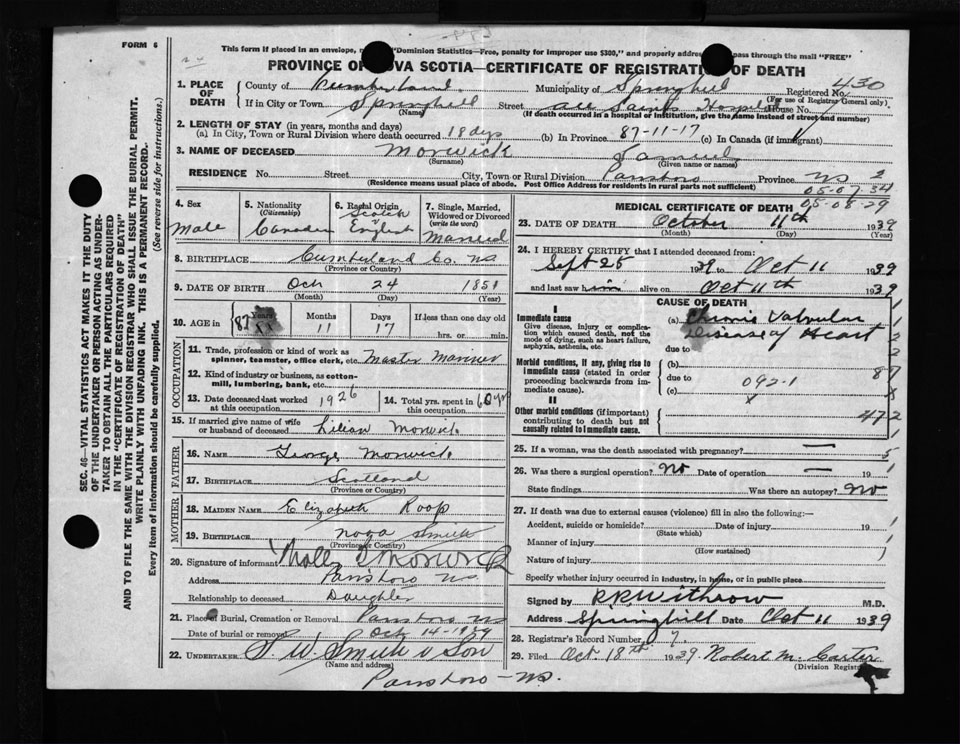 FORM 6
This form if placed in an envelope, "Dominion Statistics—Free, penalty for improper use $300," and properly addre pass through the mail "FREE"
PROVINCE OF NOVA SCOTIA—CERTIFICATE OF REGISTRATION OF DEATH
1. PLACE OF DEATH County of Cumberland Municipality of Springhill Registered No. 430
(For use of Registrar General only)
If in City or Town Springhill Street All Saints Hospital House No.
(Name) (If death occurred in a hospital or institution, give the name instead of street and number)
2. LENGTH OF STAY (in years, months and days)
(a) In City, Town or Rural Division where death occurred 18 days (b) In Province 87-11-17 (c) In Canada (if immigrant)
3. NAME OF DECEASED Morwick Samuel
(Surname) (Given name or names)
RESIDENCE No. Street City, Town or Rural Division Parrsboro Province NS 2
(Residence means usual place of abode. Post Office Address for residents in rural parts not sufficient)
05-07-34
05-08-29
4. Sex Male
5. Nationality (Citizenship) Canadian
6. Racial Origin Scotch English
7. Single, Married, Widowed or Divorced (write the word) Married
8. BIRTHPLACE Cumberland Co. NS
(Province or Country)
9. DATE OF BIRTH Oct 24 1851
(Month) (Day) (Year)
10. AGE in Years 87 Months 11 Days 17 If less than one day old hrs. or min.
OCCUPATION
11. Trade, profession or kind of work as spinner, teamster, office clerk, etc. Master Mariner
12. Kind of industry or business, as cotton-mill, lumbering, bank, etc.
13. Date deceased last worked at this occupation 1926
14. Total yrs. spent in this occupation. 60 yrs
15. If married give name of wife or husband of deceased Lilian Morwick
FATHER
16. NAME George Morwick
17. BIRTHPLACE Scotland
(Province or Country)
MOTHER
18. MAIDEN NAME Elizabeth Roop
19. BIRTHPLACE Nova Scotia
(Province or Country)
20. Signature of informant Morwick
Address Parrsboro NS
Relationship to deceased Daughter
21. Place of Burial, Cremation or Removal Parrsboro NS
Date of burial or removal Oct 14-1939
22. UNDERTAKER Smith & Son
(Name and address)
Parrsboro - NS.
MEDICAL CERTIFICATE OF DEATH
23. DATE OF DEATH October 11th 1939
(Month) (Day) (Year)
24. I HEREBY CERTIFY that I attended deceased from:
Sept 25 1939 to Oct 11 1939
and last saw him alive on Oct 11th 1939
CAUSE OF DEATH
I
Immediate cause
Give disease, injury or complication which caused death, not the mode of dying, such as heart failure, asphyxia, asthenia, etc.
(a) Chronic Valvular Disease of Heart
due to
Morbid conditions, if any, giving rise to immediate cause (stated in order proceeding backwards from immediate cause).
(b)
due to 092-1
(c)
II
Other morbid conditions (if important) contributing to death but not causally related to immediate cause.
472
25. If a woman, was the death associated with pregnancy? —
26. Was there a surgical operation? No Date of operation — 19
State findings Was there an autopsy? No
27. If death was due to external causes (violence) fill in also the following:—
Accident, suicide or homicide? Date of injury 19
(State which)
Manner of injury
(How sustained)
Nature of injury
Specify whether injury occurred in industry, in home, or in public place
Signed by Withrow M.D.
Address Springhill Date Oct 11 1939
28. Registrar's Record Number 7.
29. Filed Oct. 18th 1939. Robert M. Carter
(Division Registrar)
SEC. 46—VITAL STATISTICS ACT MAKES IT THE DUTY
OF THE UNDERTAKER OR PERSON ACTING AS UNDER-
TAKER TO OBTAIN ALL THE PARTICULARS REQUIRED
IN THE "CERTIFICATE OF REGISTRATION OF DEATH"
AND TO FILE THE SAME WITH THE DIVISION REGISTRAR WHO SHALL ISSUE THE BURIAL PERMIT.
WRITE PLAINLY WITH UNFADING INK. THIS IS A PERMANENT RECORD.
Every item of information should be carefully supplied. (See reverse side for instructions.)